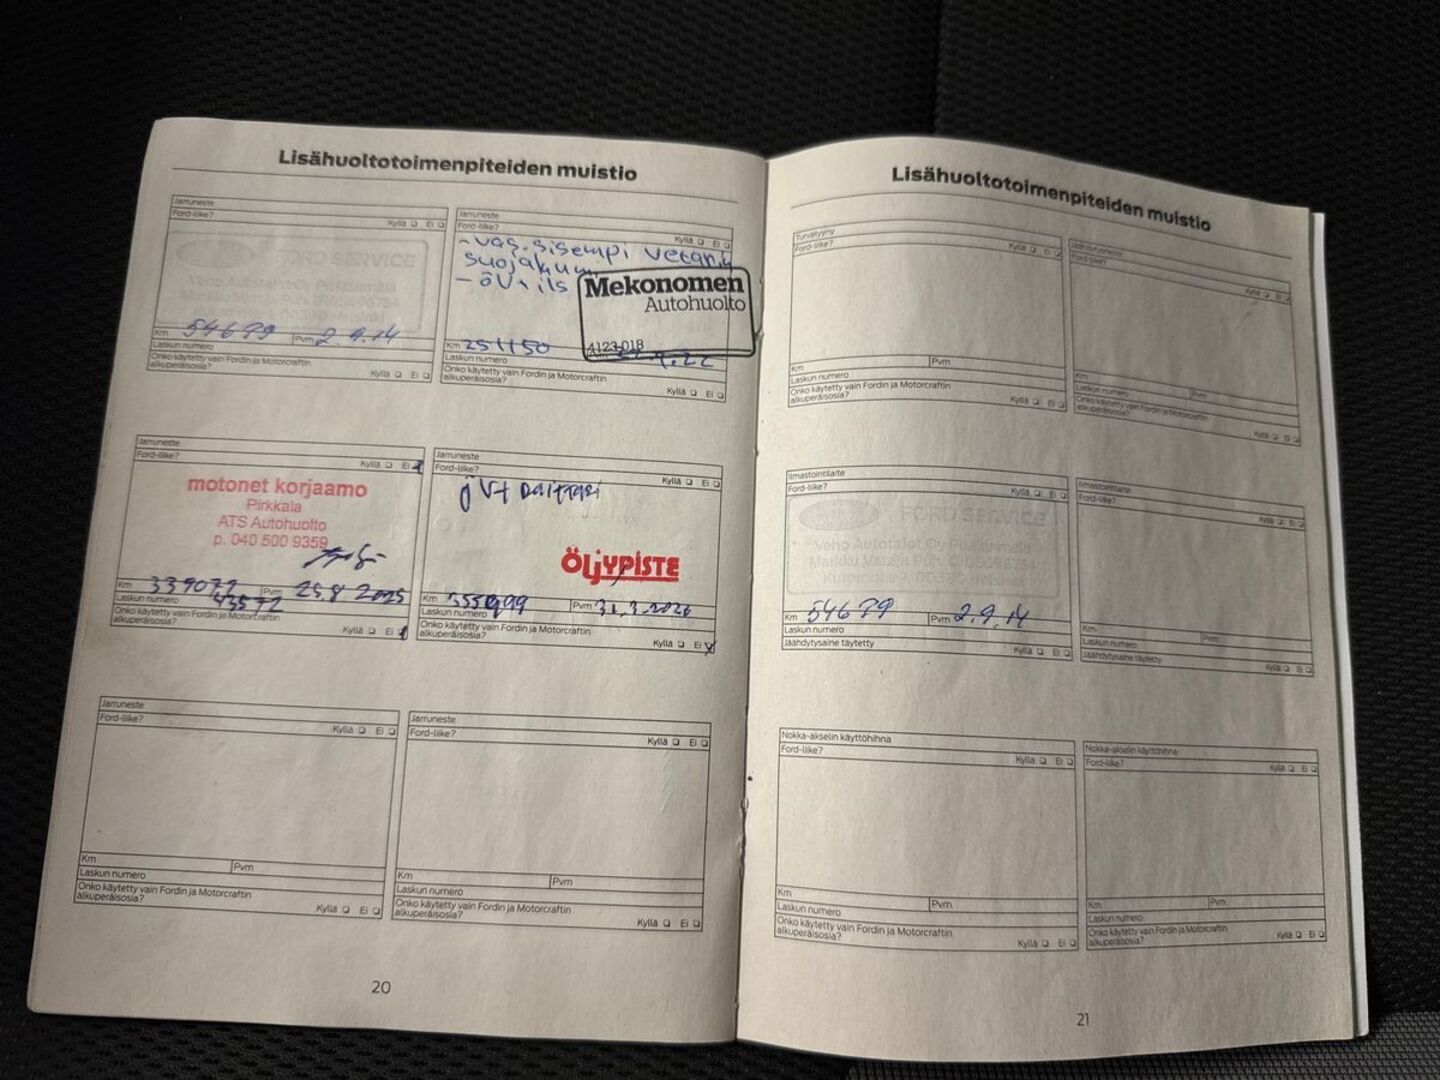 Lisähuoltotoimenpiteiden muistio
Jarruneste
Ford-liike?
Kyllä Ei
FORD SERVICE
Km 54679 Pvm 2.9.14
Laskun numero
Onko käytetty vain Fordin ja Motorcraftin
alkuperäisosia?
Kyllä Ei
Jarruneste
Ford-liike?
Kyllä Ei
- vas. sisempi vetariin
suojakumi
- öV + ils
Mekonomen
Autohuolto
4123 018
Km 251150
Laskun numero
Onko käytetty vain Fordin ja Motorcraftin
alkuperäisosia?
Kyllä Ei
Jarruneste
Ford-liike?
Kyllä Ei
motonet korjaamo
Pirkkala
ATS Autohuolto
p. 040 500 9359
Km 339072 Pvm 25.8 2025
Laskun numero 43572
Onko käytetty vain Fordin ja Motorcraftin
alkuperäisosia?
Kyllä Ei
Jarruneste
Ford-liike?
Kyllä Ei
ÖLJYPISTE
Km Pvm 31.3.2026
Laskun numero
Onko käytetty vain Fordin ja Motorcraftin
alkuperäisosia?
Kyllä Ei
Jarruneste
Ford-liike?
Kyllä Ei
Km Pvm
Laskun numero
Onko käytetty vain Fordin ja Motorcraftin
alkuperäisosia?
Kyllä Ei
Jarruneste
Ford-liike?
Kyllä Ei
Km Pvm
Laskun numero
Onko käytetty vain Fordin ja Motorcraftin
alkuperäisosia?
Kyllä Ei
20
Lisähuoltotoimenpiteiden muistio
Turvatyyny
Ford-liike?
Kyllä Ei
Km Pvm
Laskun numero
Onko käytetty vain Fordin ja Motorcraftin
alkuperäisosia?
Kyllä Ei
Jäähdytysneste
Ford-liike?
Kyllä Ei
Km Pvm
Laskun numero
Onko käytetty vain Fordin ja Motorcraftin
alkuperäisosia?
Kyllä Ei
Ilmastointilaite
Ford-liike?
Kyllä Ei
FORD SERVICE
Km 54679 Pvm 2.9.14
Laskun numero
Jäähdytysaine täytetty
Kyllä Ei
Ilmastointilaite
Ford-liike?
Kyllä Ei
Km Pvm
Laskun numero
Jäähdytysaine täytetty
Kyllä Ei
Nokka-akselin käyttöhihna
Ford-liike?
Kyllä Ei
Km Pvm
Laskun numero
Onko käytetty vain Fordin ja Motorcraftin
alkuperäisosia?
Kyllä Ei
Nokka-akselin käyttöhihna
Ford-liike?
Kyllä Ei
Km Pvm
Laskun numero
Onko käytetty vain Fordin ja Motorcraftin
alkuperäisosia?
Kyllä Ei
21